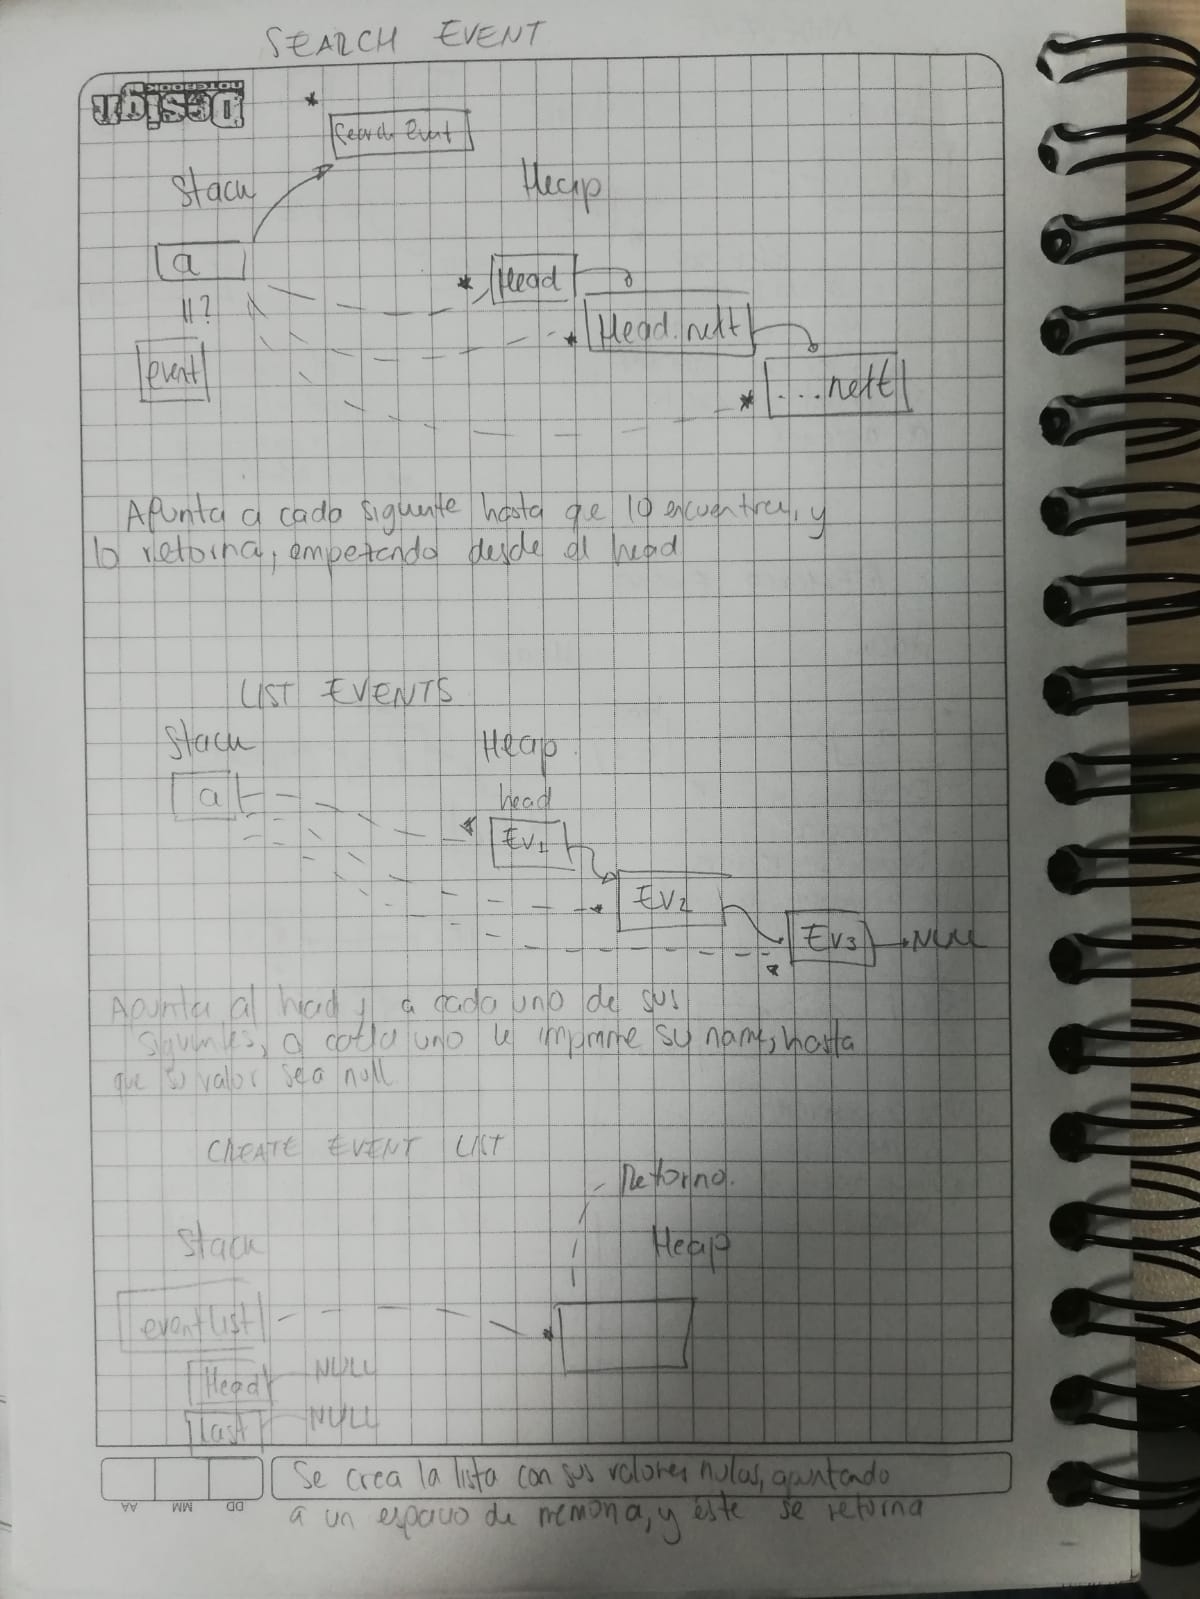 SEARCH EVENT
Design
NOTEBOOK
*
Search Event
Stack
Heap
a
* Head
11?
* Head.next
event
* ...next
Apunta a cada siguiente hasta que lo encuentra, y
lo retorna, empezando desde el head
LIST EVENTS
Stack
Heap
a
head
Ev1
Ev2
Ev3
NULL
Apunta al head y a cada uno de sus
siguientes, a cada uno le imprime su name, hasta
que su valor sea null
CREATE EVENT LIST
Retorno.
Stack
Heap
eventlist
Head
NULL
Last
NULL
Se crea la lista con sus valores nulos, apuntando
a un espacio de memoria, y éste se retorna
AA MM DD